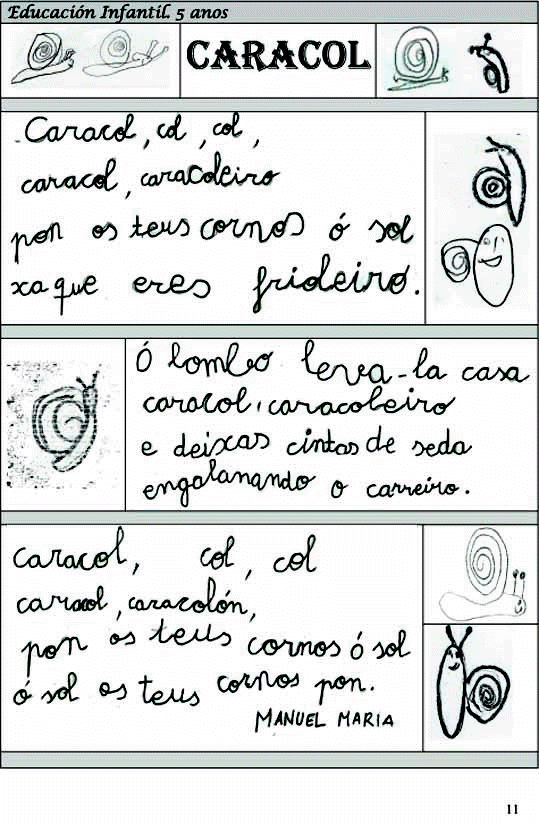 Educación Infantil. 5 anos
CARACOL
Caracol, col, col,
caracol, caracoleiro
pon os teus cornos ó sol
xa que eres frideiro.
Ó lombo leva-la casa
caracol, caracoleiro
e deixas cintas de seda
engalanando o carreiro.
caracol, col, col
caracol, caracolón,
pon os teus cornos ó sol
ó sol os teus cornos pon.
MANUEL MARIA
11